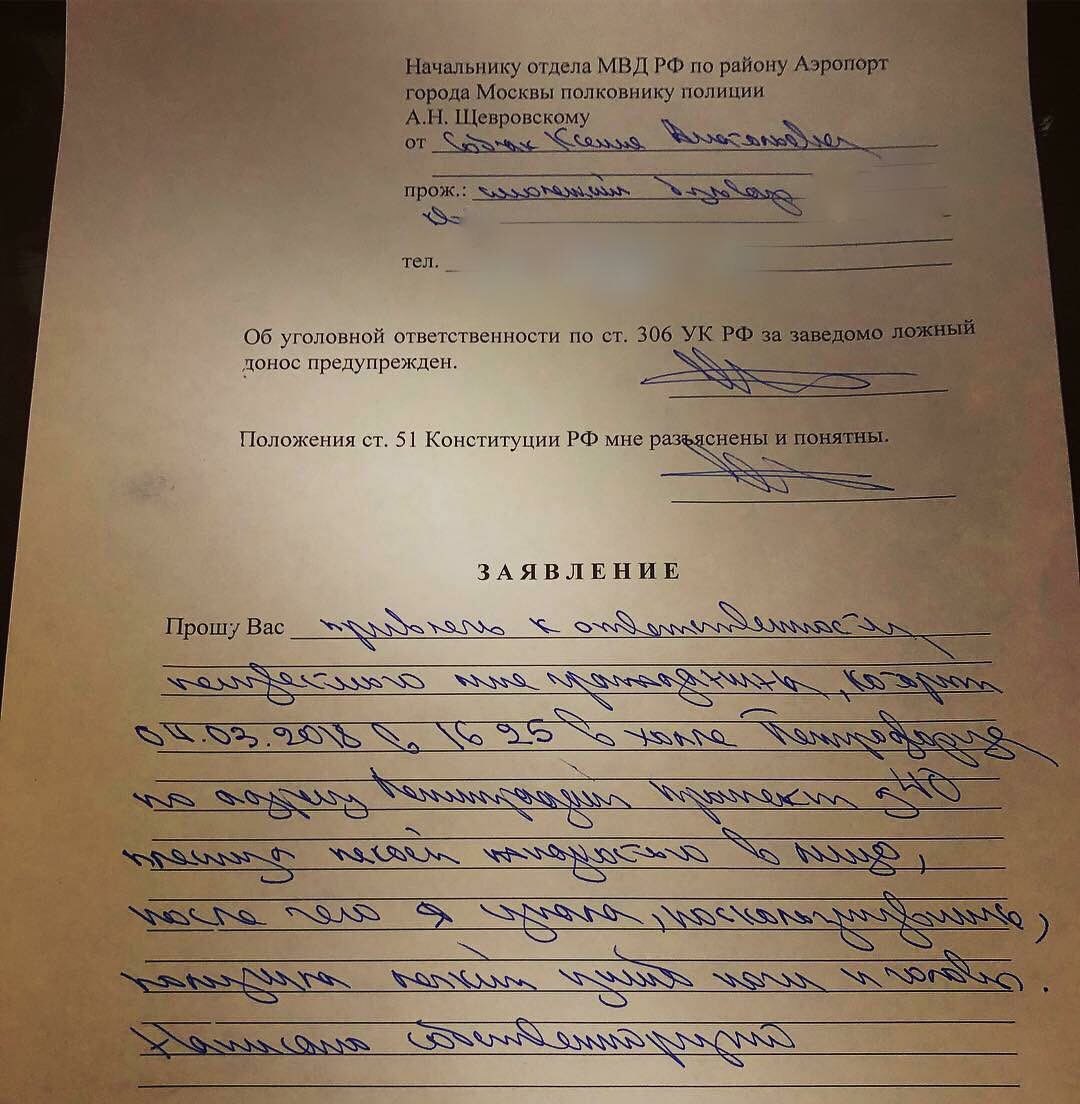 Начальнику отдела МВД РФ по району Аэропорт
города Москвы полковнику полиции
А.Н. Щевровскому
от Собчак Ксения Анатольевна
прож.: бульвар
тел.
Об уголовной ответственности по ст. 306 УК РФ за заведомо ложный
донос предупрежден.
Положения ст. 51 Конституции РФ мне разъяснены и понятны.
ЗАЯВЛЕНИЕ
Прошу Вас привлечь к ответственности
неизвестного мне гражданина, который
04.03.2018 в 16 25 в холле
по адресу Ленинградский проспект д 40
в лицо,
после чего я упала, поскользнувшись,
получила ушиб ноги и головы.
Написано собственноручно